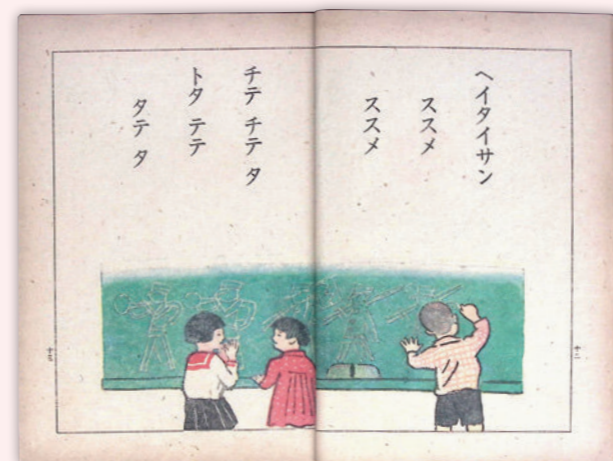 ヘイタイサン
ススメ
ススメ
チテ チテ タ
トタ テテ
タテ タ
十二
十三